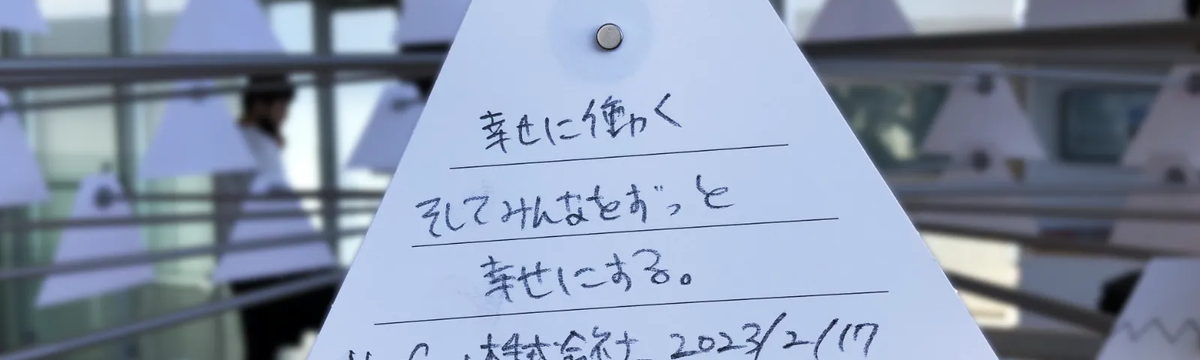 幸せに働く
そしてみんなをずっと
幸せにする。
株式会社 2023/2/17